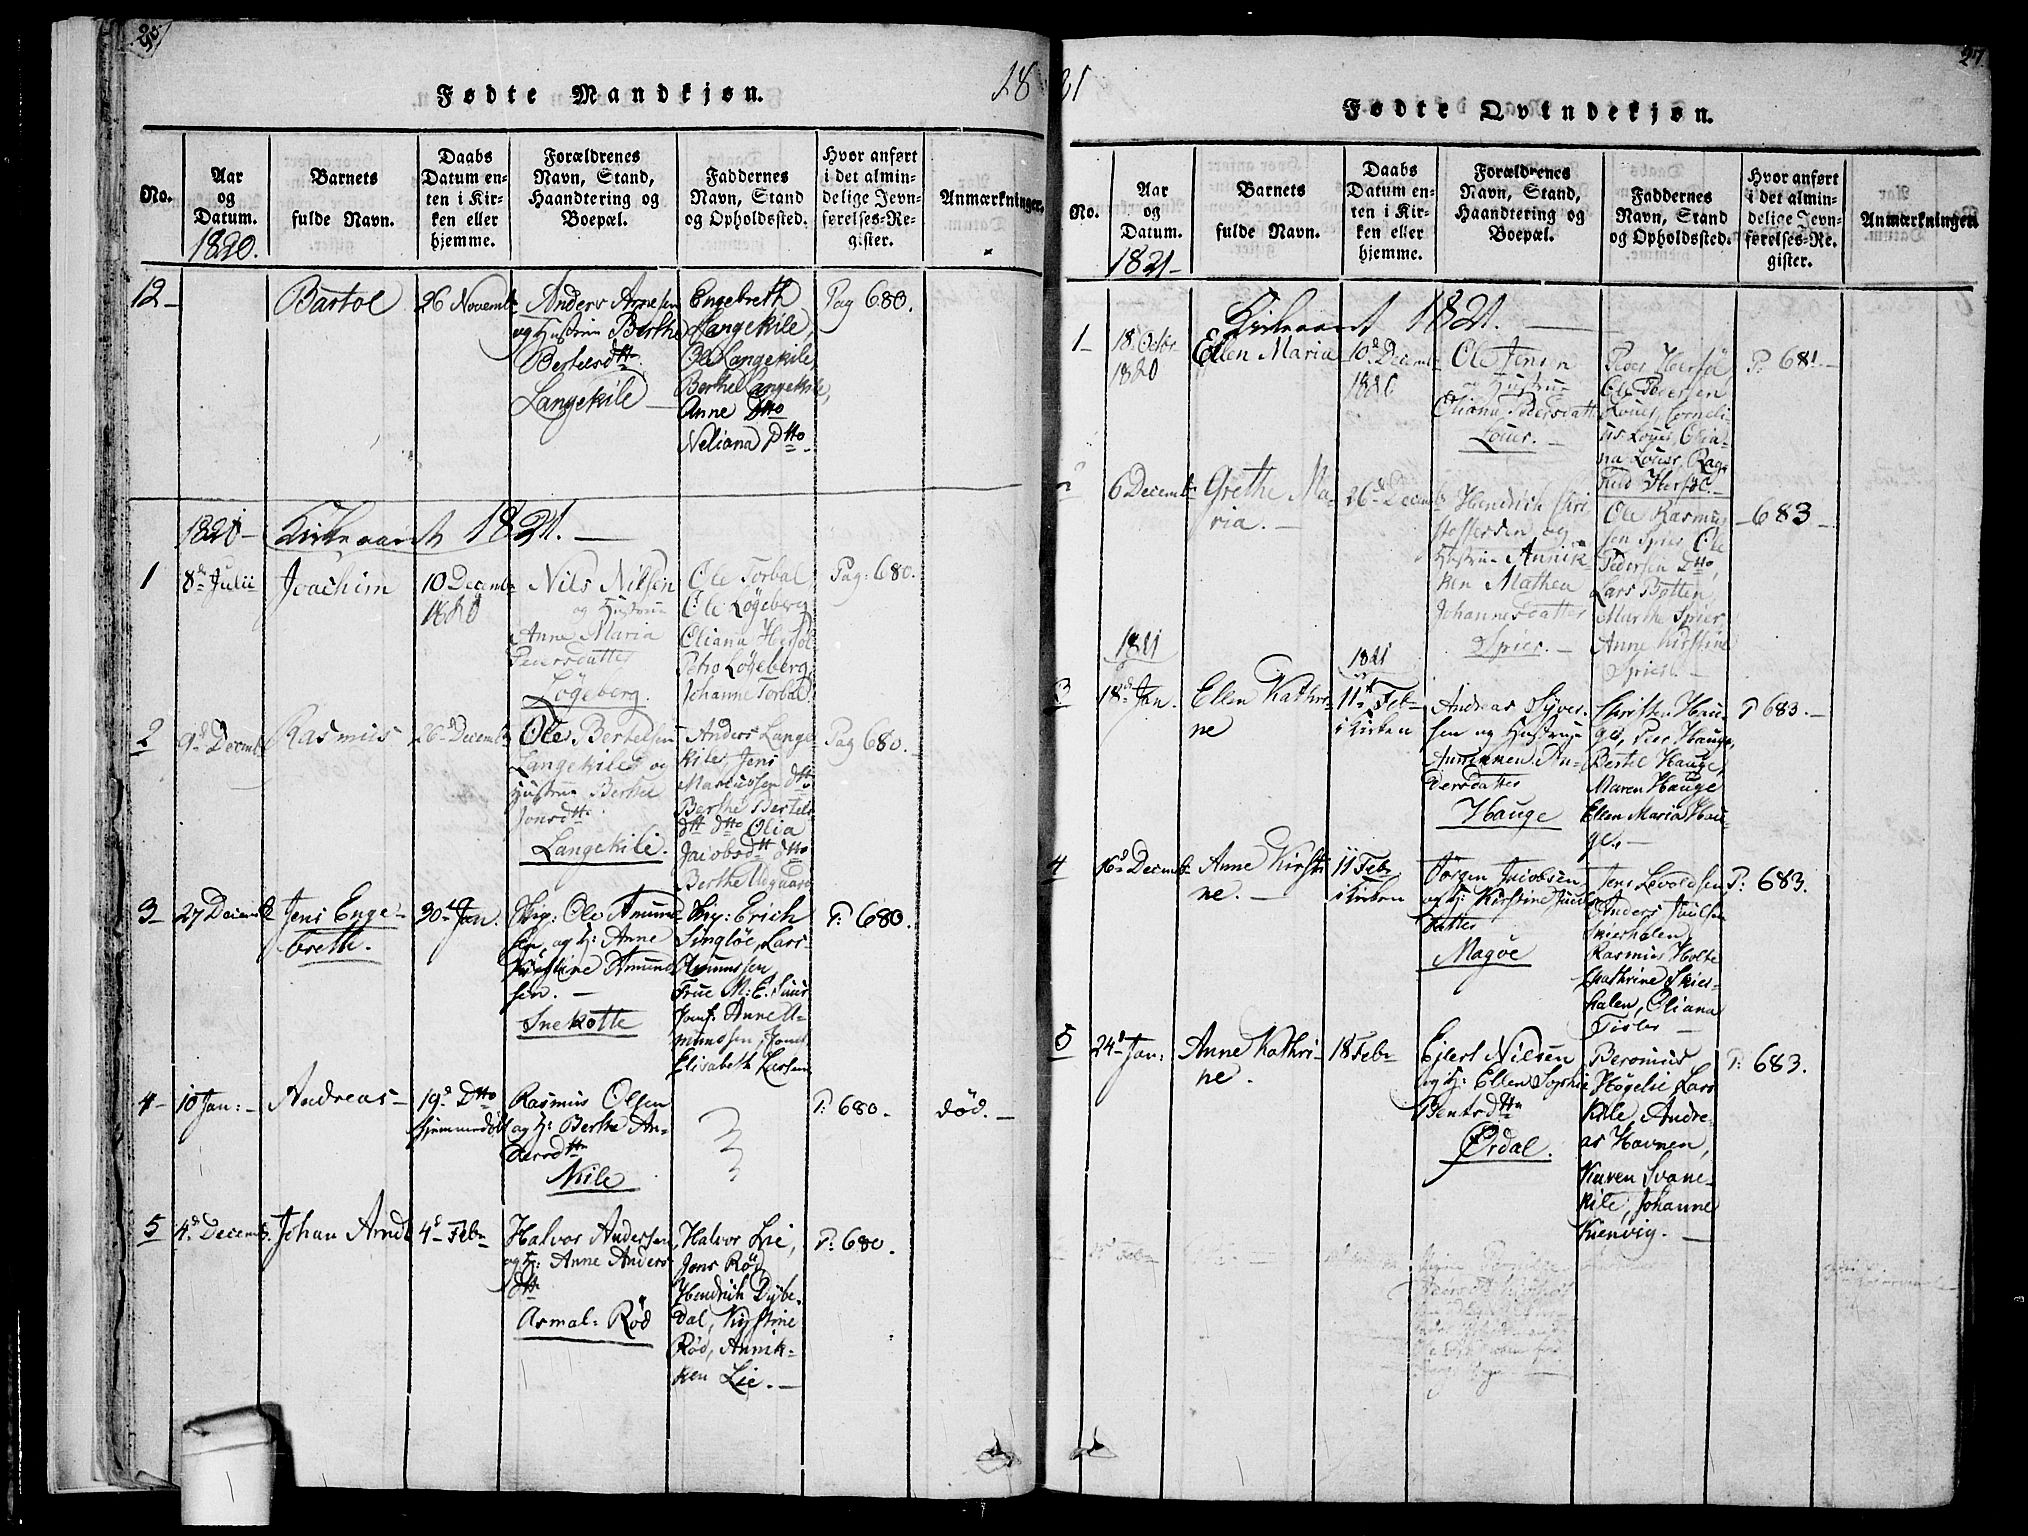 18
Fødte Mandkjøn.
No.
Aar
og
Datum.
1820.
Barnets
fulde Navn.
Daabs
Datum en-
ten i Kir-
ken eller
hjemme.
Forældrenes
Navn, Stand,
Haandtering og
Boepæl.
Faddernes
Navn, Stand
og Opholdssted.
Hvor anført
i det almin-
delige Jevn-
førelses-Re-
gister.
Anmærkninger.
12-
26 Novemb
Anders Arnesen
og Hustrue Berthe
Bertelsdtt
Langekile
Engebreth
Langekile,
Ole Langekile
Berthe Langekile,
Anne Dtto
Neliana Dtto.
Pag 680.
1820
Kirkeaaret 1821.
1
8de Julii
Joachim
10 Decemb
1820
Nils Nilsen
og Hustrue
Anne Maria
Pedersdatter
Løgeberg.
Ole Torbal
Ole Løgeberg
Oliana Hersøl
Løgeberg
Johanne Torbal
Pag: 680.
2
9d Decemb
Rasmus
26 Decemb
Ole Bertelsen
Langekile og
Hustrue Berthe
Jonsdtt
Langekile.
Anders Lange
kile, Jens
Mariussen dtto
Berthe Bertels
dtt dtto Olia
Jacobsdtt dtto
Berthe
Pag 680.
3-
27 Decemb
Jens Enge-
breth.
30 Jan.
Ole Amund
sen, og H: Anne
Kirstine Amund
sen. -
Snekotte
Erich
Singløe, Lars
Amunssen
Frue M: E:
Jomf. Anne A-
mundsen, Jomf
Elisabeth Larsen
P: 680.
4-
10 Jan: -
Andreas -
19d Dtto
hjemmedøbt
Rasmus Olsen
og H: Berthe An-
dersdtt
Kile
P: 680.
død. -
5
4d Decemb.
Johan Arndt
4d Feb
Halvor Andersen
og H: Anne Anders
dtt
Asmal: Rød
Halvor Lie,
Jens Rød
Hendrich Dybe-
dal, Kirstine
Rød, Annik-
ken Lie. -
P: 680.
21
27
Fødte Qvindekjøn.
No.
Aar
og
Datum.
1821-
Barnets
fulde Navn.
Daabs
Datum en-
ten i Kir-
ken eller
hjemme.
Forældrenes
Navn, Stand,
Haandtering og
Boepæl.
Faddernes
Navn, Stand
og Opholdssted.
Hvor anført
i det almin-
delige Jevn-
førelses-Re-
gister.
Anmærkninger
Kirkeaaret 1821.
1-
18 Octbr
1820
Ellen Maria
10d Decemb
1820
Ole Jensen
og Hustrue
Oliana Pedersdatter
Louer. -
Hersøl
Ole Pedersen
Louer, Corneli-
us Louer, Olia-
na Louer, Rag-
nild Hersøl. -
P: 681.
2
6 Decemb
Grethe Ma-
ria. -
26 Decemb
Hendrich Chri
stoffersen og
Hustrue Annik
ken Mathea
Johannesdatter
Spier. -
Ole Rasmus
sen Spier, Ole
Pedersen Dtto,
Lars Botten,
Marthe Spier,
Anne Kirstine
Spier. -
683 -
1821
3
18d Jan.
Ellen Kathri-
ne
1821
11te Feb
i Kirken
Andreas Syver-
sen og Hustrue
An-
dersdatter
Hauge
Carsten Hau-
ge, Peer Hauge,
Bertil Hauge,
Maren Hauge
Ellen Maria Hau-
ge. -
P 683. -
4
16d Decemb
Anne Kirsti
ne. -
11 Feb
i Kirken
Jørgen Jacobsen
og H: Kirstine Juuls
datter
Magøe
Jens Levordsen
Anders Juulsen
Skierhalen
Rasmus Holte
Cathrine Skier-
halen, Oliana
Tisler -
P: 683.
5
24d Jan:
Anne Kathri-
ne.
18 Feb
Ejlert Nilsen
og H: Ellen Sophie
Bentsdtt
Ørdal.
Beromus
Høgelie, Lars
Kile, Andre-
as Havnen,
Karen Svane-
kile, Johanne
Kienvig. -
P: 683.
Feb